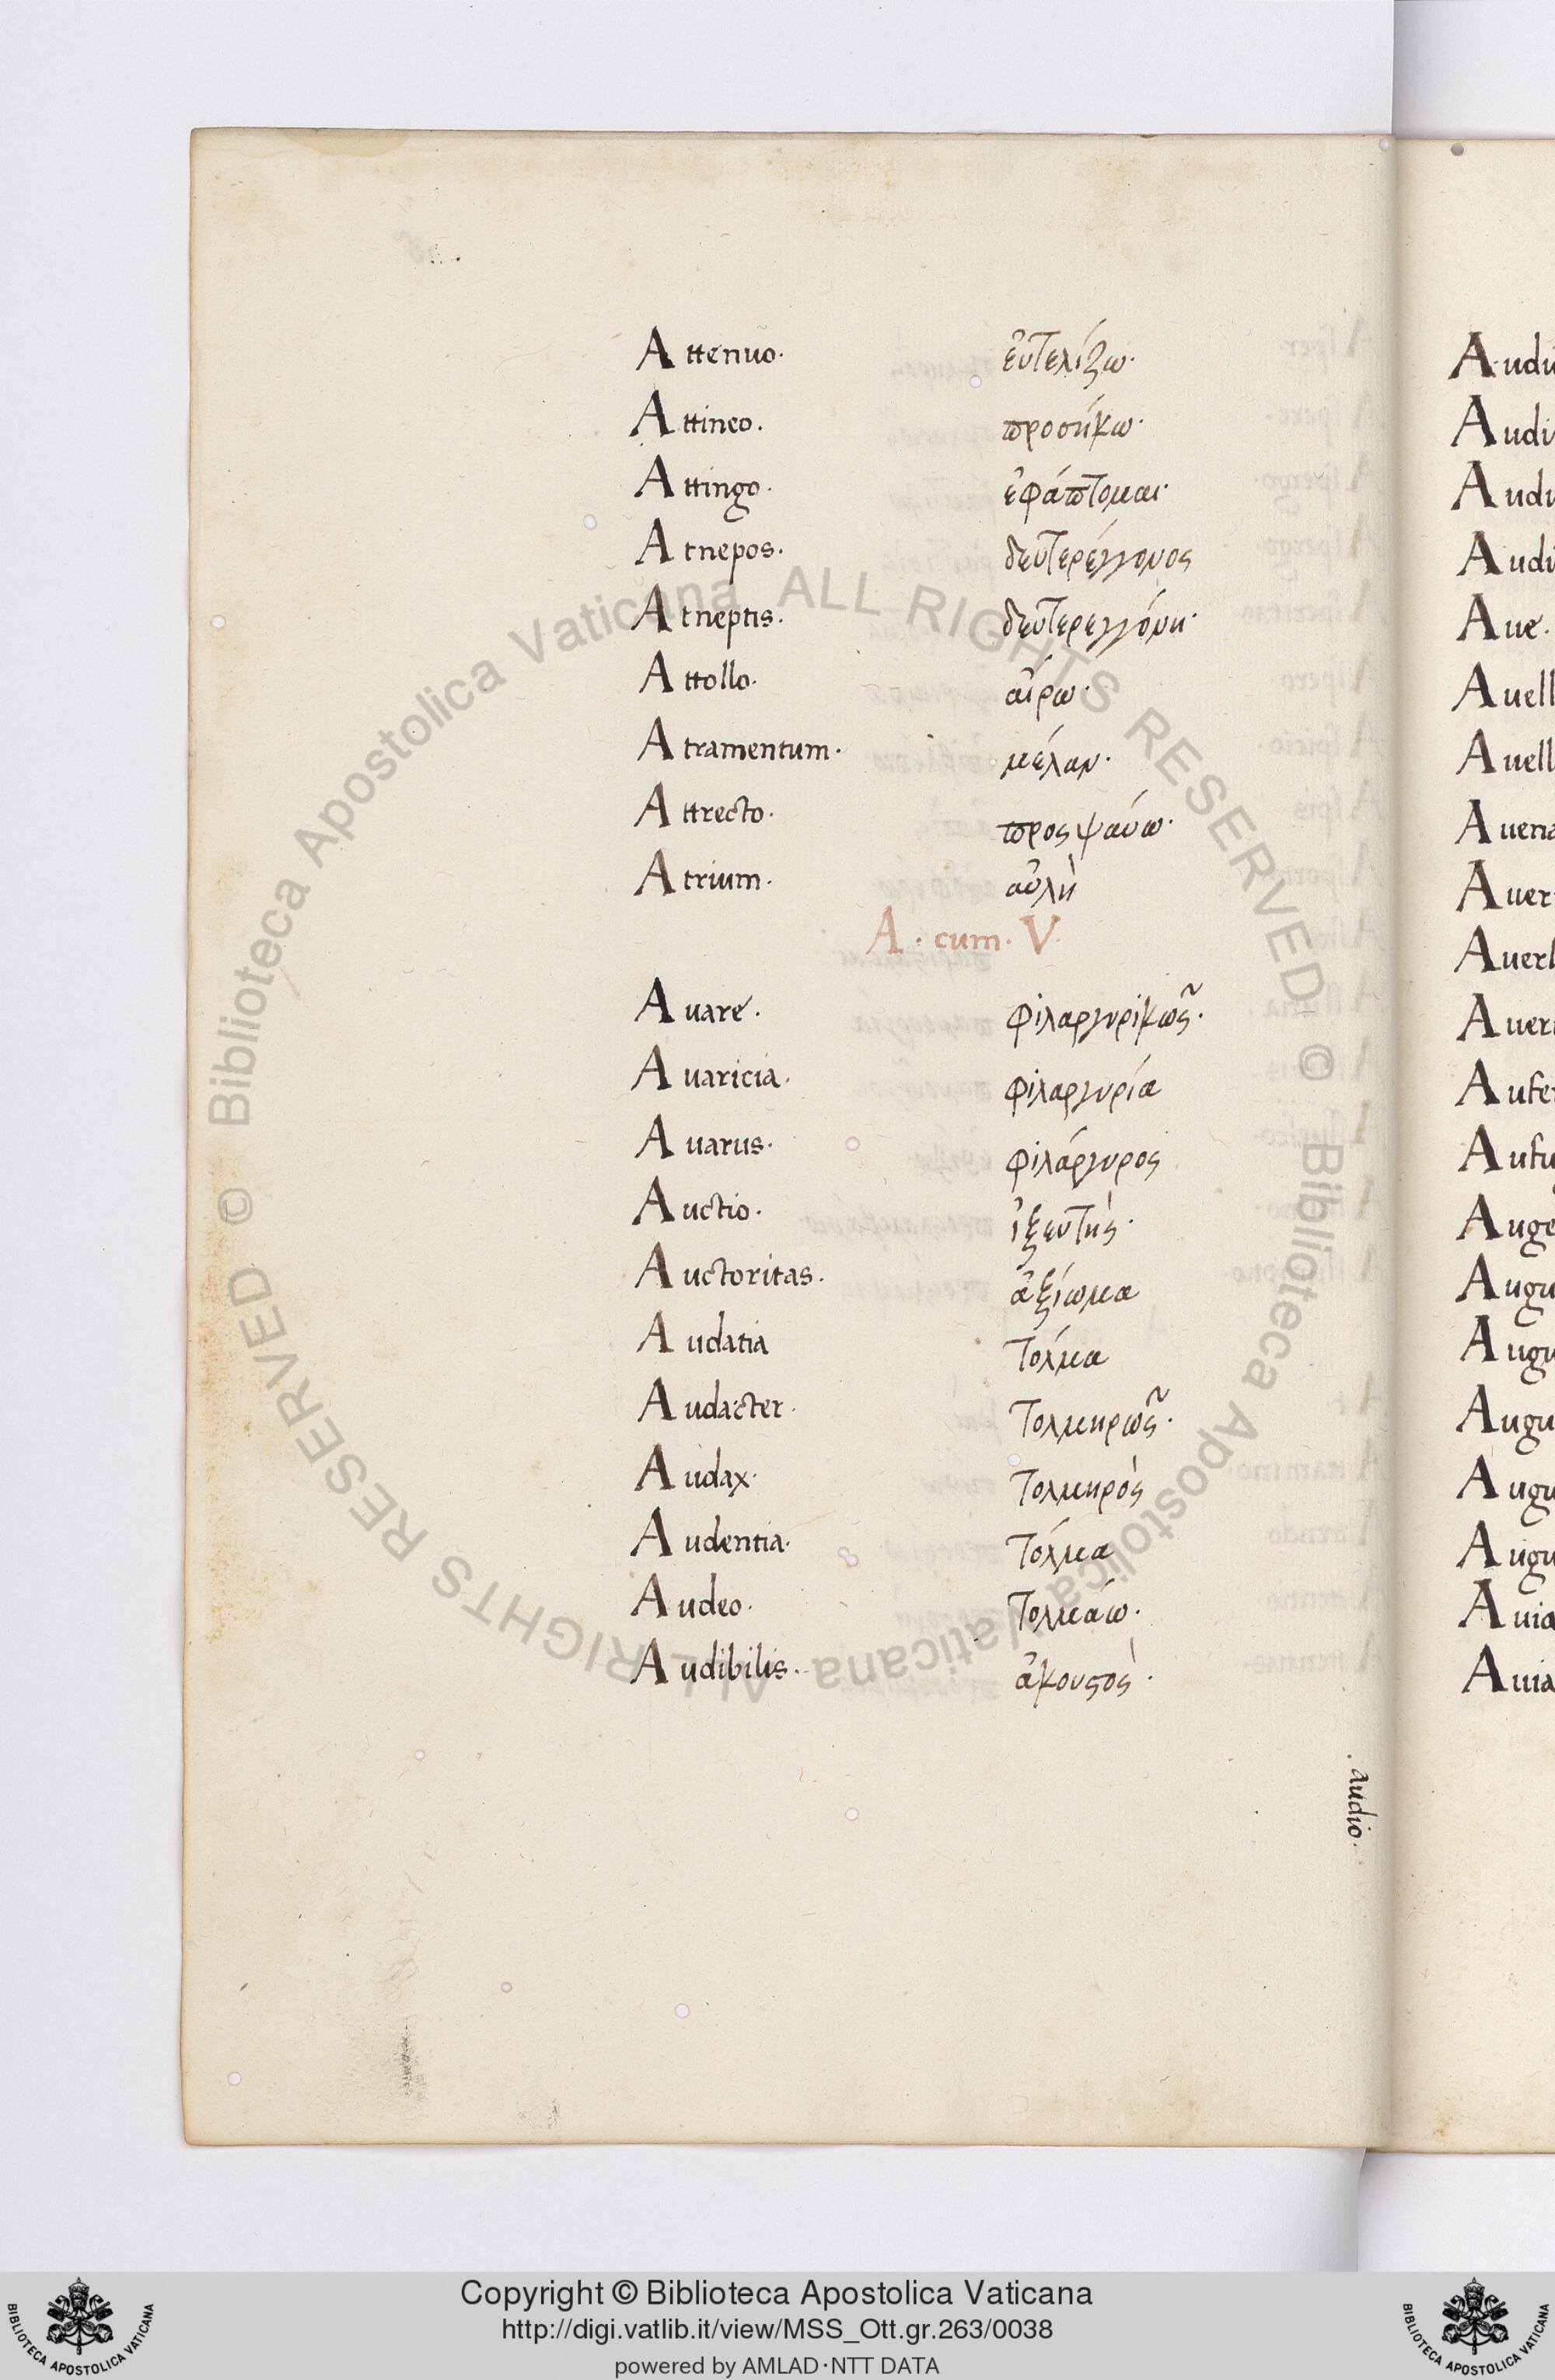 Attenuo. εὐτελίζω.
Attineo. προσήκω.
Attingo. ἐφάπτομαι.
Atnepos. δευτερέγγονος
Atneptis. δευτερεγγόνη.
Attollo. αἴρω.
Atramentum. μέλαν.
Attrecto. προςψαύω.
Atrium. αὐλὴ
A. cum. V.
Auare. φιλαργυρικῶς.
Auaricia. φιλαργυρία
Auarus. φιλάργυρος
Auctio. ἰξευτὴς.
Auctoritas. ἀξίωμα
Audatia τόλμα
Audacter. τολμηρῶς.
Audax. τολμηρὸς
Audentia. τόλμα
Audeo. τολμάω.
Audibilis. ἀκουστὸς.
. Audio.
Audi
Aue.
Auell
Auell
Auena
Auer
Auer
Aufe
Aufu
Auge
Augu
Augu
Augu
Augu
Augu
Auia
Auia
Biblioteca Apostolica Vaticana ALL RIGHTS RESERVED ©
Biblioteca Apostolica Vaticana ALL RIGHTS RESERVED ©
Copyright © Biblioteca Apostolica Vaticana
http://digi.vatlib.it/view/MSS_Ott.gr.263/0038
powered by AMLAD·NTT DATA
BIBLIOTECA APOSTOLICA VATICANA
BIBLIOTECA APOSTOLICA VATICANA